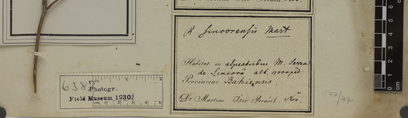 A Sincorensis Mart
Habitat in alpestribus M. Serra
de Sincorá alt
Provinciae Bahiensis
Dr Martius Iter Brasil
6387
Photogr.
Field Museum 1930